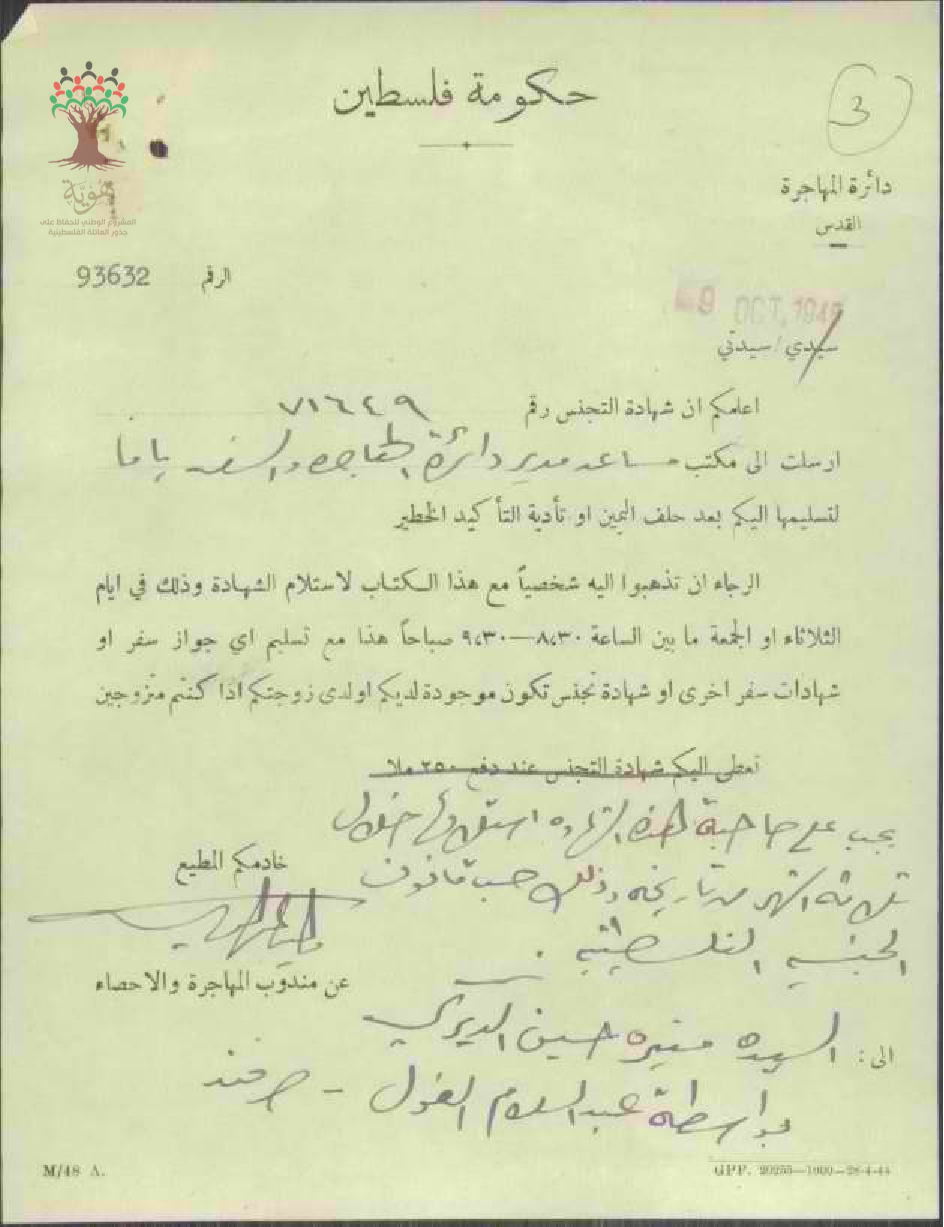 حكومة فلسطين
3
دائرة المهاجرة
القدس
هوية
المشروع الوطني للحفاظ على
جذور العائلة الفلسطينية
الرقم 93632
9 OCT. 194
سيدي/سيدتي
اعلمكم ان شهادة التجنس رقم ٧١٦٤٩
ارسلت الى مكتب مساعد مدير دائرة المهاجرة والسفر يافا
لتسليمها اليكم بعد حلف اليمين او تأدية التأكيد الخطير
الرجاء ان تذهبوا اليه شخصياً مع هذا الكتاب لاستلام الشهادة وذلك في ايام
الثلاثاء او الجمعة ما بين الساعة ٨،٣٠—٩،٣٠ صباحاً هذا مع تسليم اي جواز سفر او
شهادات سفر اخرى او شهادة تجنس تكون موجودة لديكم او لدى زوجتكم اذا كنتم متزوجين
تعطى اليكم شهادة التجنس عند دفع ٢٥٠ ملا
يجب على صاحبة هذه الشهادة استلامها خلال
ثلاثة اشهر من تاريخه وذلك حسب قانون
الجنسية الفلسطينية .
خادمكم المطيع
عن مندوب المهاجرة والاحصاء
الى : السيدة منيره حسين الديراوي
بواسطة عبد السلام الغول - صرفند
M/48 A.
GPP. 20255—1000—28-4-44